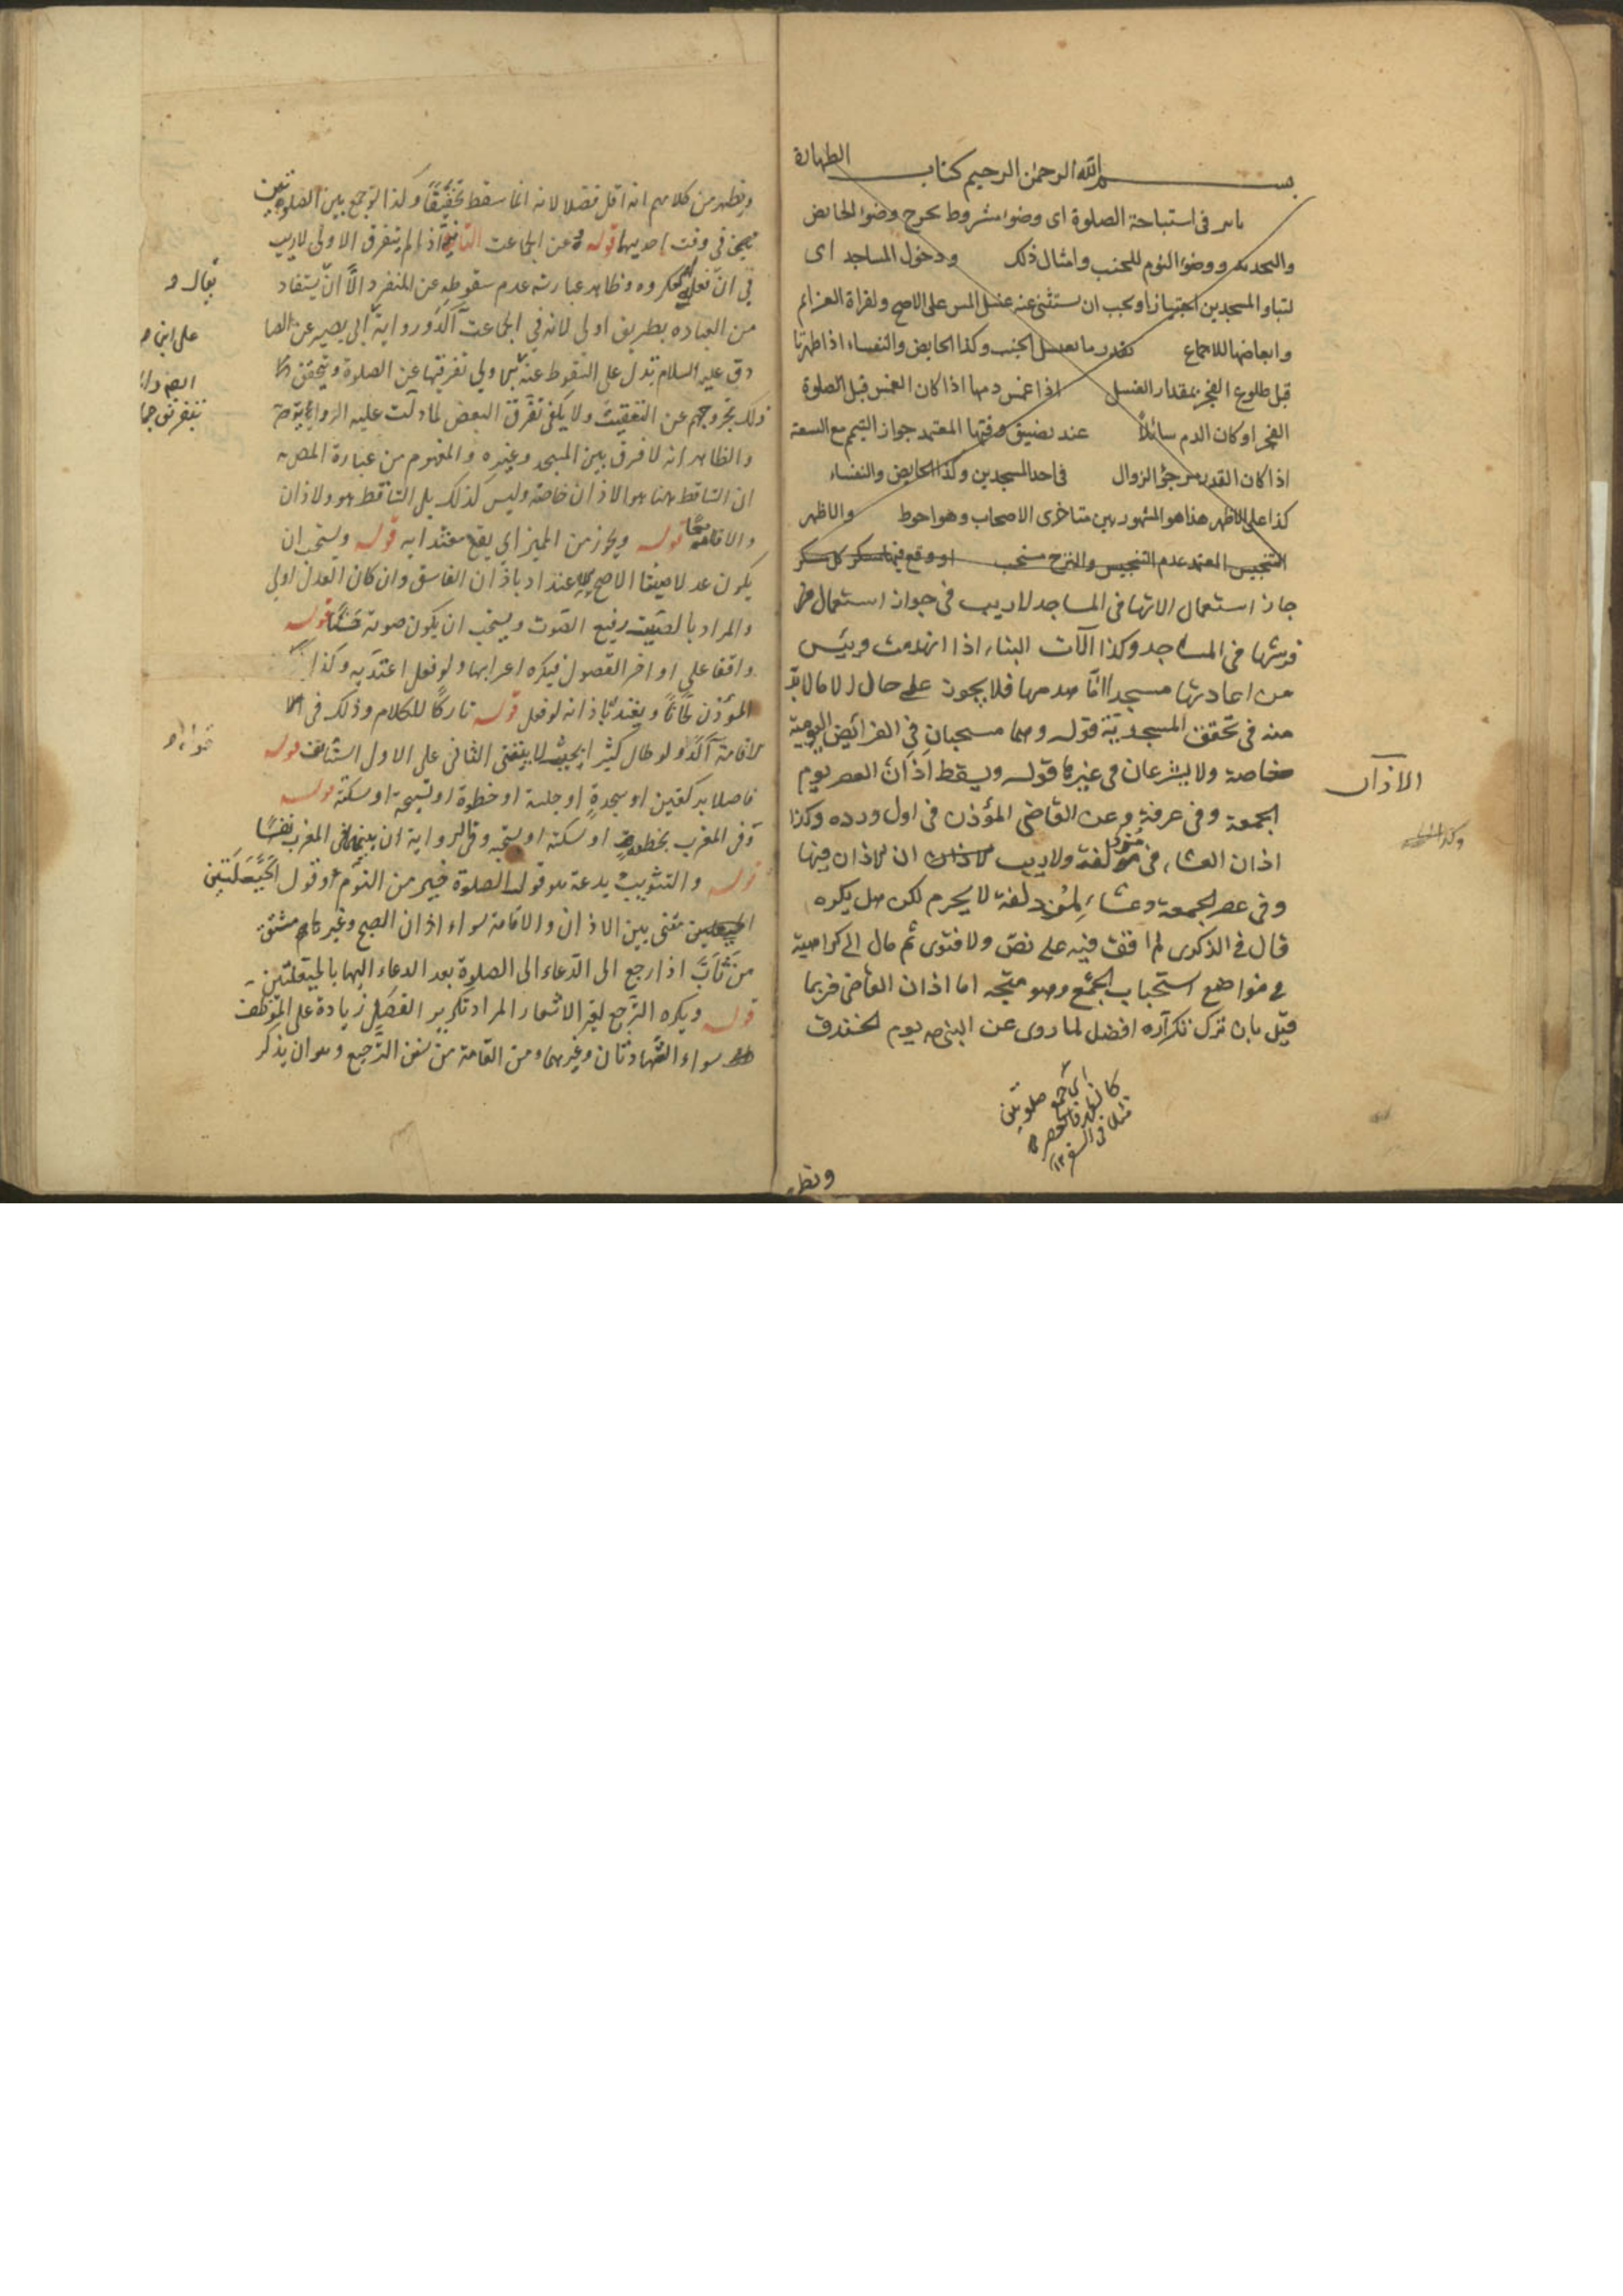 بسم الله الرحمن الرحيم كتاب الطهارة
في استباحة الصلوة اى وضوا مشروط بحرج وضوا لحايض
والتحديد ووضوء النوم للجنب وامثال ذلك ودخول المساجد اى
لتباو المسجدين اجتيازا ويجب ان يستثنى عنه غسل المس على الاصح ولقراة العزائم
وابعاضها للاجماع بقدر ما يغسل الجنب وكذا الحايض والنفساء اذا طهرتا
قبل طلوع الفجر بمقدار الغسل اذا غمس دمها اذا كان الغمس قبل الصلوة
الفجر او كان الدم سائلاً عند تضيق وقتها المعتمد جواز التيمم مع السعة
اذا كان القدر مرجو الزوال في احد المسجدين وكذا الحايض والنفساء
كذا على الاظهر هذا هو المشهور بين متاخرى الاصحاب وهو احوط والاظهر
التنجيس المعتمد عدم التنجيس والنزح مستحب او وقع فيها مسكر كل مسكر
جاز استعمال الاتها في المساجد لا ريب في جواز استعمال
فرشها في المساجد وكذا آلات البناء اذا انهدمت ويئس
من اعادتها مسجدا امّا هدمها فلا يجوز على حال
منه في تحقق المسجدية قوله وهما مستحبان في الفرائض اليومية
خاصة ولا يشرعان في غيرها قوله ويسقط اذان العصر يوم
الجمعة وفي عرفة وعن القاضى المؤذن في اول ورده وكذا
اذان العشاء في مزدلفة ولا ريب ان الاذان فيها
وفي عصر الجمعة وعشاء المزدلفة لا يحرم لكن هل يكره
قال في الذكرى لم اقف فيه على نص ولا فتوى ثم مال الى كراهية
في مواضع استحباب الجمع وهو متجه اما اذان القاضى فربما
قيل بان ترك تكراره افضل لما روى عن النبى ص يوم الخندق
اى جمع صلوتين
كالظهر والعصر
في السفر ١٢
ونظر
الاذان
ويظهر من كلامهم انه اقل فضلا لانه انما سقط تخفيفاً وكذا لو جمع بين الصلوتين
في وقت احديهما قوله وعن الجماعت الثانية اذا لم يتفرق الاولى لا ريب
في ان فعله مكروه وظاهر عبارته عدم سقوطه عن المنفرد الا ان يستفاد
من العباده بطريق اولى لانه في الجماعت آكد ورواية ابى بصير عن الصا
دق عليه السلام تدل على السقوط عنه تفرقها عن الصلوة ويتحقق
ذلك بخروجهم عن التعقيب ولا يكفى تفرق البعض لما دلت عليه الرواية
والظاهر انه لا فرق بين المسجد وغيره والمفهوم من عبارة المص
ان الساقط هنا هو الاذان خاصة وليس كذلك بل الساقط هو ولاذان
والاقامة معًا قوله ويجوز من المميز اى يقع معتدا به قوله ويستحب ان
يكون عدلا صيتا الاصح الاعتداد باذان الفاسق وان كان العدل اولى
والمراد بالصيت رفيع الصوت ويستحب ان يكون صوته حسنًا قوله
واقفا على اواخر الفصول فيكره اعرابها ولو فعل اعتد به وكذا
المؤذن لحّانًا ويعتد باذانه لو فعل قوله تاركًا للكلام وذلك في
لاقامة آكد ولو طال كثيرا بحيث لا يبقى الثانى على الاول استانف قوله
فاصلا بركعتين او سجدة او جلسة او خطوة او تسبيحة او سكتة قوله
وفى المغرب بخطوة او سكتة او تسبيحة وفى الرواية ان بينهما فى المغرب نفسًا
قوله والتثويب بدعة هو قول الصلوة خير من النوم او قول الحيعلتين
مثنى بين الاذان والاقامة سواء اذان الصبح وغيرها مشتق
من ثاب اذا رجع الى الدعاء الى الصلوة بعد الدعاء اليها بالحيعلتين
قوله ويكره الترجيع لغير الاشعار المراد تكرير الفصل زيادة على الموظف
سواء الشهادتان وغيرهما ومن العامة من سنن الترجيع وهو ان يذكر
يقال و
على ابن